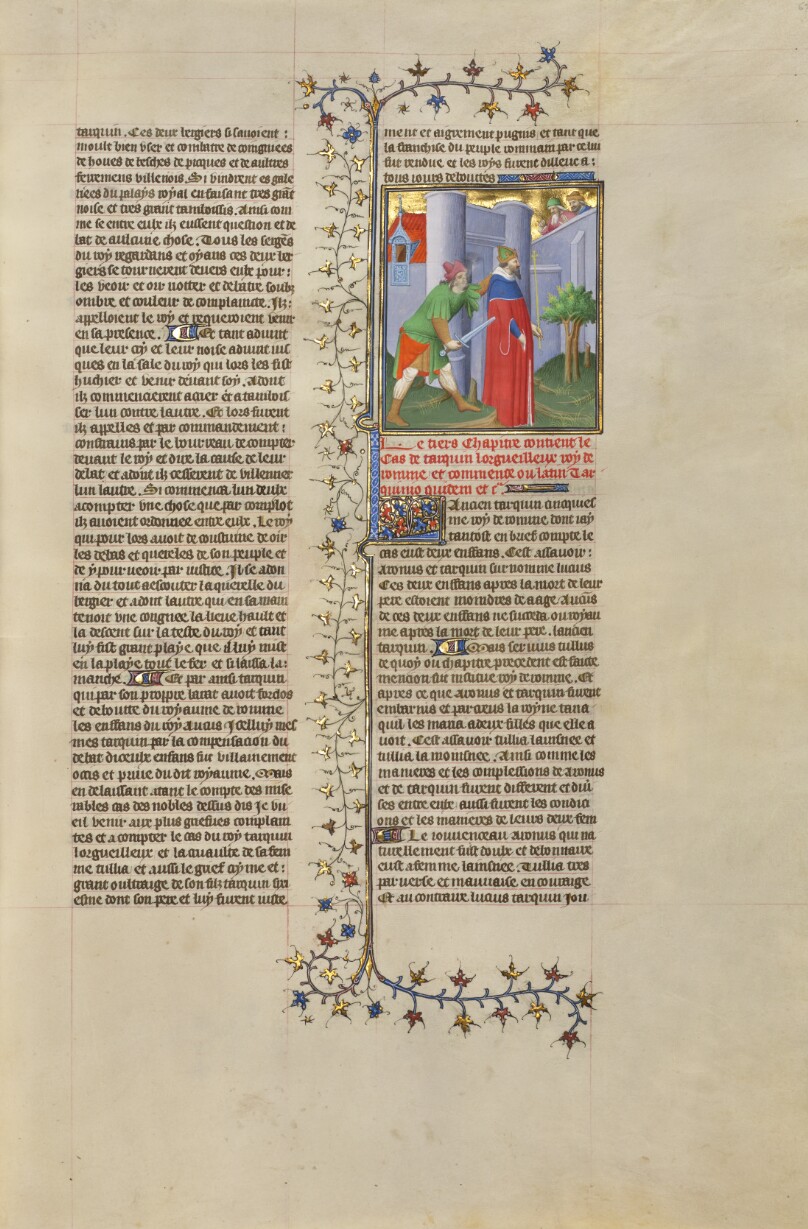 tarquin. Ces deux bergiers si sauoient:
moult bien vser et combatre de congnees
de houes de besches de picques et de aultres
ferremens villenois. Si vindrent es gale
ries du palays royal en faisant tres grāt
noise et tres grant tamboissis. Ainsi com
me se entre eulx ilz eussent question et de
bat de aulcune chose. Tous les sergēs
du roy regardans et oyans ces deux ber
giers se tournerent deuers eulx pour:
les veoir et oir notter et debatre soubz
ombre et couleur de complaincte. Ilz:
appelloient le roy et requeroient venir
en sa presence. Et tant aduint
que leur cry et leur noise aduint ius
ques en la sale du roy qui lors les fist
huchier et venir deuant soy. Adont
ilz commencerent a crier et a tambois
ser lun contre lautre. Et lors furent
ilz appelles et par commandement:
constrains par le bourreau de compter
deuant le roy et dire la cause de leur
debat et adont ilz cesserent de villenner
lun lautre. Si commenca lun deulx
a compter vne chose que par complot
ilz auoient ordonnee entre eulx. Le roy
qui pour lors auoit de coustume de oir
les debas et quereles de son peuple et
de y pourueoir par iustice. Il se adon
na du tout a escouter la querelle du
bergier et adont lautre qui en sa main
tenoit vne congnee la lieue hault et
la descent sur la teste du roy et tant
luy fist grant playe que il luy mist
en la playe tout le fer et si laissa la:
manche. Et par ainsi tarquin
qui par son propre barat auoit fordos
et deboutte du royaume de romme
les enffans du roy Ancus Icelluy mes
mes tarquin par la compensacion du
debat diceulx enfans fut villainement
occis et priue du dit royaume. Mais
en delaissant atant le compte des mise
rables cas des nobles dessus dis Je vu
eil venir aux plus griefues complain
tes et a compter le cas du roy tarquin
lorgueilleux et la cruaulte de sa fem
me tullia et aussi le grief cryme et:
grant oultraige de son filz tarquin six
esme dont son pere et luy furent iuste
ment et aigrement pugnis et tant que
la franchise du peuple rommain par celui
fut rendue et les roys furent dilleuc a:
tous iours deboutes
Le tiers Chapitre contient le
Cas de tarquin lorgueilleux roy de
romme et commence ou latin Tar
quino quidem et c̄.
Ancien tarquin cinquies
me roy de romme dont iay
tantost en brief compte le
cas eust deux enffans. Cest assauoir:
Aronus et tarquin surnomme lucius
Ces deux enffans apres la mort de leur
pere estoient moindres de aage Aucūs
de ces deux enffans ne succeda ou royau
me apres la mort de leur pere. lancien
tarquin. Mais seruius tullus
de quoy ou chapitre precedent est faicte
mencion fut institue roy de romme. Et
apres ce que Aronus et tarquin furent
embarnis et parcreus la royne tana
quil les maria a deux filles que elle a
uoit. Cest assauoir tullia lainsnee et
tullia la moinsnee. Ainsi comme les
manieres et les complessions de Aronus
et de tarquin furent different et diu̅
ses entre eulx aussi furent les condici
ons et les manieres de leurs deux fem
Le iouuenceau Aronus qui na
turellement fust doulx et debonnaire
eust a femme lainsnee. Tullia tres
peruerse et mauuaise en couraige
Et au contraire lucius tarquin iou